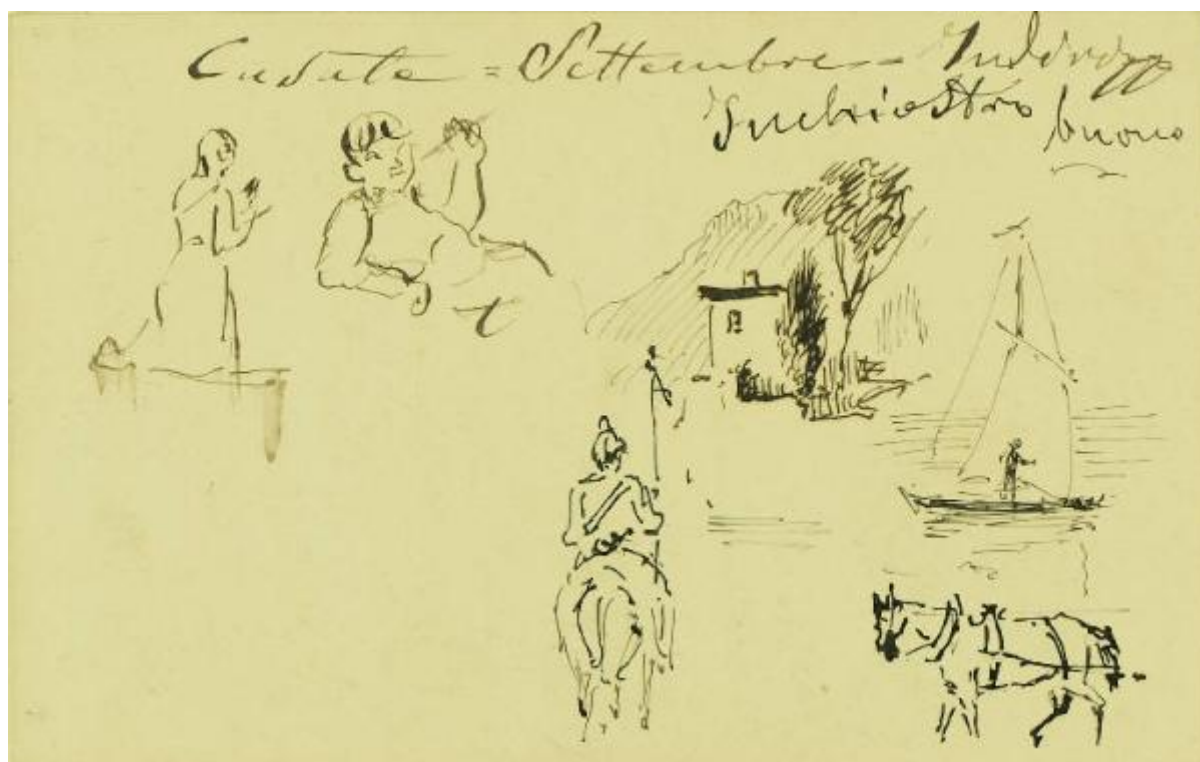 Casate = Settembre - Indirizzo
Inchiostro buono